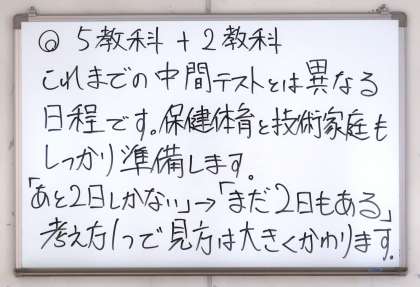 ◎ 5教科 + 2教科
これまでの中間テストとは異なる
日程です。保健体育と技術家庭も
しっかり準備します。
「あと2日しかない」→「まだ2日もある」
考え方1つで見方は大きくかわります。